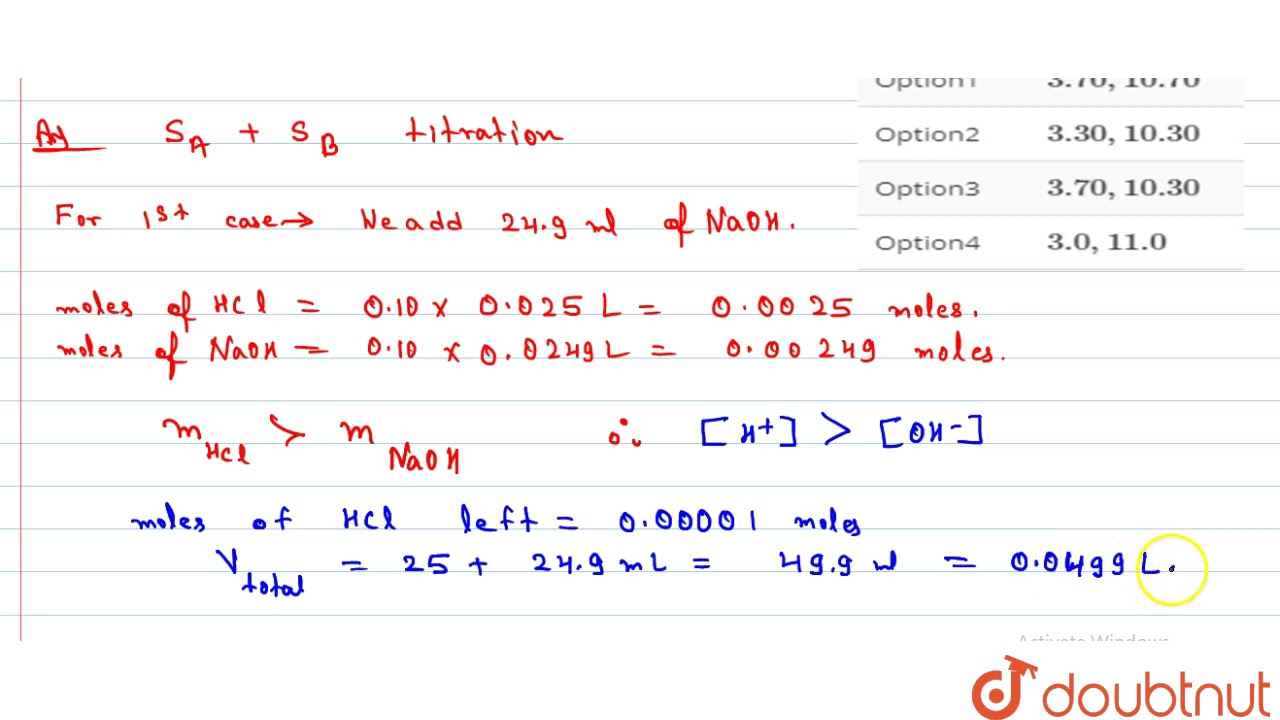 Option1 3.70, 10.70
Ans S_A + S_B titration
Option2 3.30, 10.30
Option3 3.70, 10.30
For 1st case → We add 24.9 ml of NaOH.
Option4 3.0, 11.0
moles of HCl = 0.10 x 0.025 L = 0.0025 moles.
moles of NaOH = 0.10 x 0.0249L = 0.00249 moles.
m_HCl > m_NaOH ∴ [H+] > [OH-]
moles of HCl left = 0.00001 moles
V_total = 25 + 24.9 mL = 49.9 ml = 0.0499 L.
Activate Windows
doubtnut